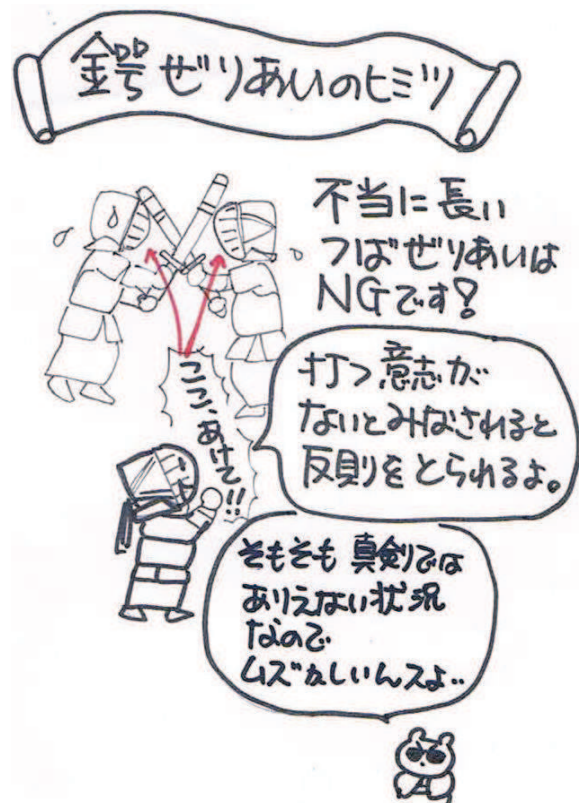 鍔ぜりあいのヒミツ
不当に長い
つばぜりあいは
NGです!
打つ意志が
ないとみなされると
反則をとられるよ。
ここ、あけて!!
そもそも真剣では
ありえない状況
なので
ムズかしいんスよ..